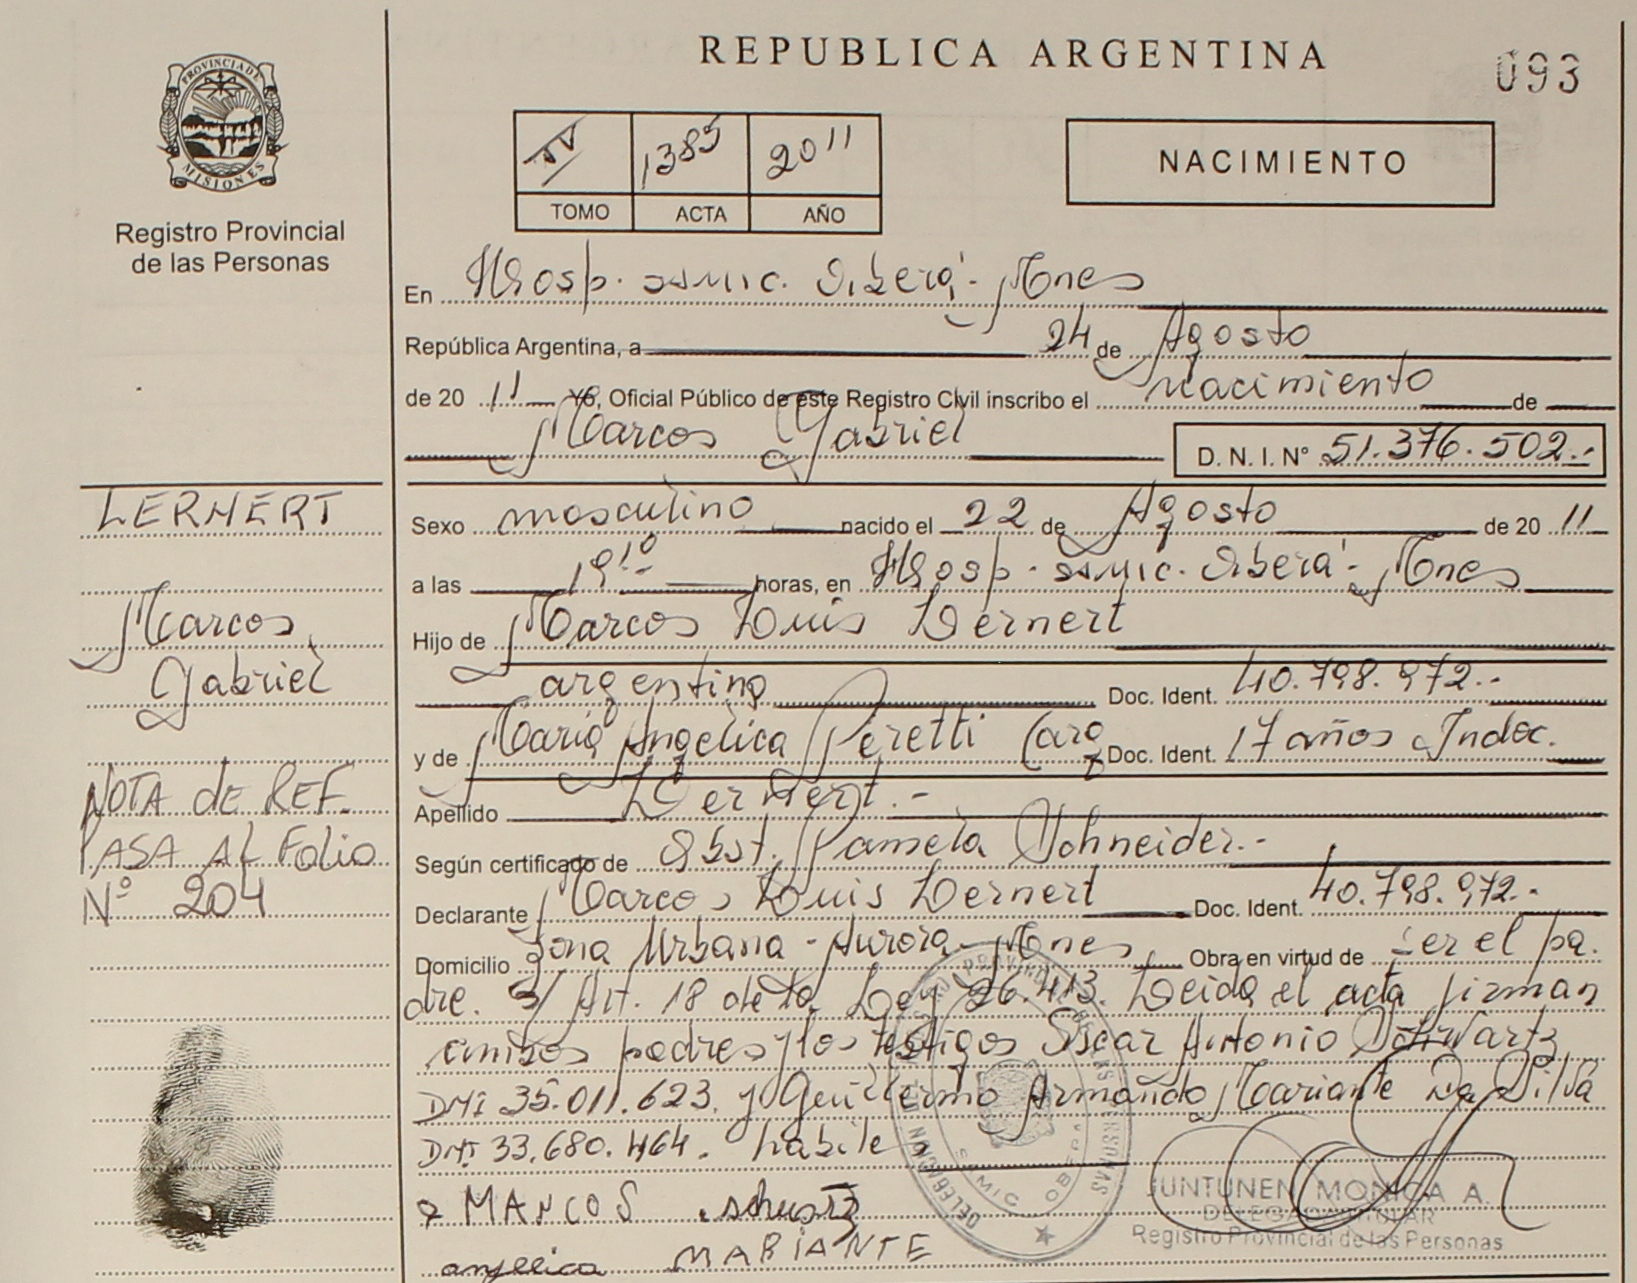 REPUBLICA ARGENTINA
093
PROVINCIA DE
MISIONES
Registro Provincial
de las Personas
IV 1385 2011
TOMO ACTA AÑO
NACIMIENTO
En Hosp. SAMIC. Oberá - Mnes
República Argentina, a 24 de Agosto
de 20 11 Yo, Oficial Público de este Registro Civil inscribo el nacimiento de
Marcos Gabriel D. N. I. N° 51.376.502.-
LERNERT
Sexo masculino nacido el 22 de Agosto de 20 11
a las 19:10 horas, en Hosp. SAMIC. Oberá - Mnes
Marcos
Gabriel
Hijo de Marcos Luis Lernert
argentino Doc. Ident. 40.798.972.-
y de María Angélica Peretti (arg Doc. Ident. 17 años Indoc.
NOTA de REF.
PASA AL Folio
N° 204
Apellido Lernert.-
Según certificado de Obst. Pamela Schneider.-
Declarante Marcos Luis Lernert Doc. Ident. 40.798.972.-
Domicilio Zona Urbana - Aurora - Mnes Obra en virtud de ser el pa.
dre. S/ Art. 18 de la Ley 26.413. Leida el acta firman
ambos padres y los testigos Oscar Antonio Schwartz
DNI 35.011.623. y Guillermo Armando Mariante Da Silva
DNI. 33.680.464. habiles
MARCOS
angelica MARIANTE
JUNTUNEN MONICA A.
DELEGADA TITULAR
Registro Provincial de las Personas
SAMIC OBERA